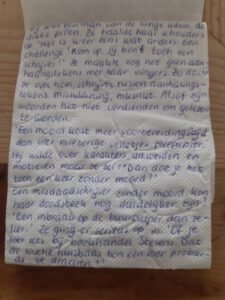 Hij was een man van de lange adem, de
dikke pillen. Ze haalde haar schouders
op 'Het is weer eens wat anders een
challenge! Kom op. Jij bent toch een
schrijver!' Ze maakte nog net geen aan-
halingstekens met haar vingers zo dacht
ze over hem, schrijver tussen aanhalings-
tekens mislukking, misnut. Alsof zijn
woorden het niet verdienden om gelezen
te worden.
'Een moord kost meer voorbereidingstijd
dan vier miezerige velletjes pleepapier.'
Hij wilde over karakters uitweiden en
motieven maar ze zei: 'Dan doe je het
toch een keer zonder moord?'
Een misdaadschrijver zonder moord kon
haar doodsteek nog duidelijker zijn?
'Een inbraak op de buurtsuper dan ze-
ker.' Ze ging er serieus op in. 'Of je
doet iets bij boekhandel Stevens Dat
de touche huisbaas hen een loer probeer-
de te draaien.'